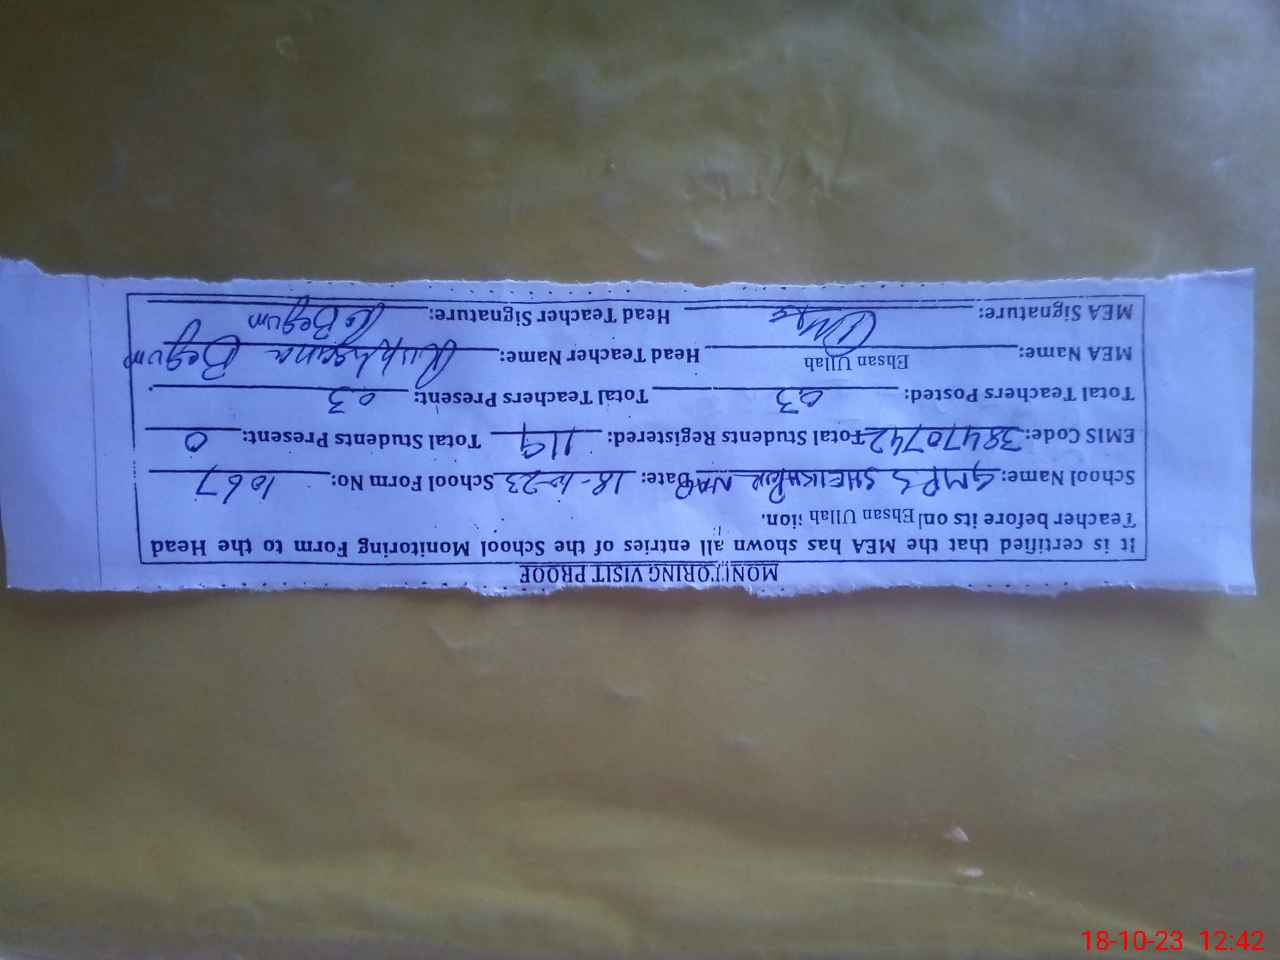 MONITORING VISIT PROOF
It is certified that the MEA has shown all entries of the School Monitoring Form to the Head
Teacher before its on Ehsan Ullah ion.
School Name: GMPS SHEIKHPUR NAB Date: 18-10-23 School Form No: 1067
EMIS Code: 38470742 Total Students Registered: 119 Total Students Present: 0
Total Teachers Posted: 03 Total Teachers Present: 03
MEA Name: Ehsan Ullah Head Teacher Name: Rukhsana Begum
MEA Signature: Head Teacher Signature: Begum
18-10-23 12:42